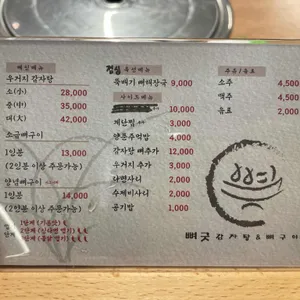 메인메뉴
우거지 감자탕
소(小) 28,000
중(中) 35,000
대(大) 42,000
소금뼈구이
1인분 13,000
(2인분 이상 주문가능)
양념뼈구이
1인분 14,000
(2인분 이상 주문가능)
점심 메뉴
뚝배기 뼈해장국 9,000
사이드메뉴
10,000
계란찜 3,000
양푼주먹밥 4,000
감자탕 뼈추가 12,000
우거지 추가 3,000
라면사리 2,000
수제비사리 2,000
공기밥 1,000
주류/음료
소주 4,500
맥주 4,500
음료 2,000
뼈굿 감자탕&뼈구이